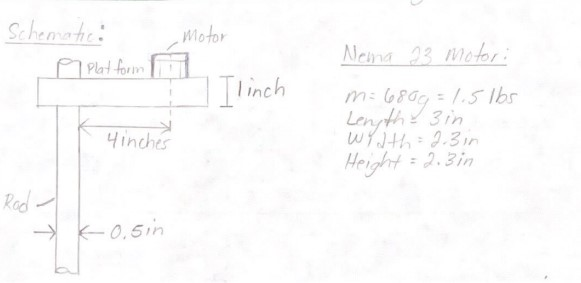 Schematic:
Motor
Platform
1 inch
4 inches
Rod
0.5in
Nema 23 Motor:
m= 680g = 1.5 lbs
Length = 3in
Width = 2.3in
Height = 2.3in